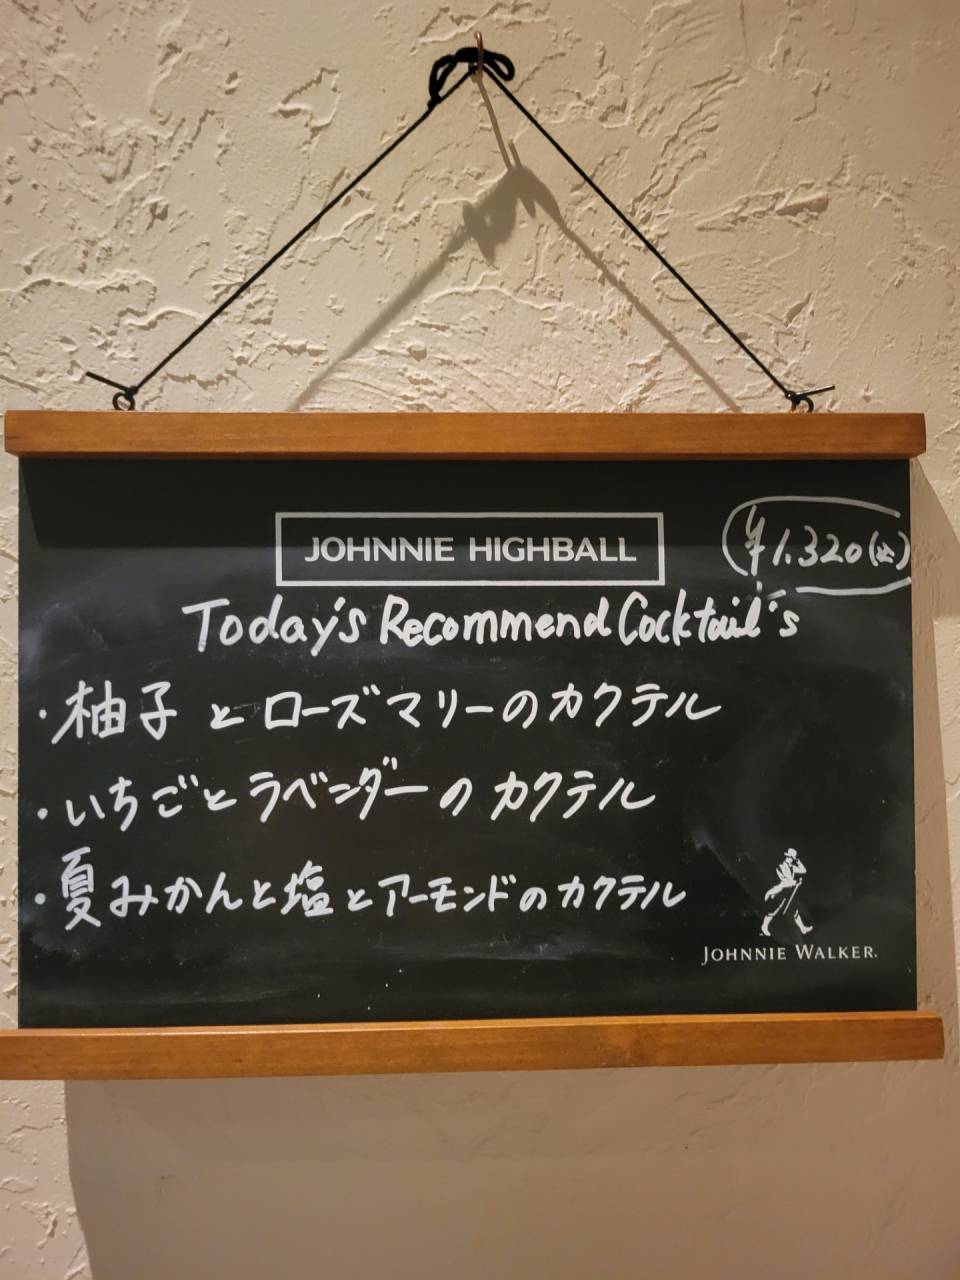 JOHNNIE HIGHBALL
¥1.320(込)
Today's Recommend Cocktail's
・柚子とローズマリーのカクテル
・いちごとラベンダーのカクテル
・夏みかんと塩とアーモンドのカクテル
JOHNNIE WALKER.